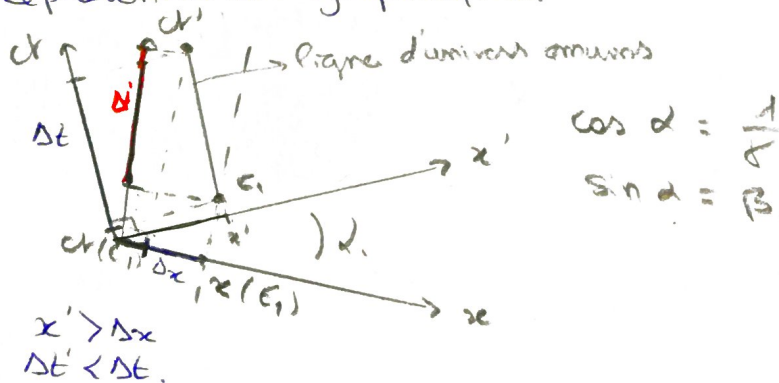 ct
ct'
ligne d'univers
Δt
Δt'
cos α = 1/γ
sin α = β
x'
E₁
x'
α
ct(E₁)
Δx
x(E₁)
x
x' > Δx
Δt' < Δt.